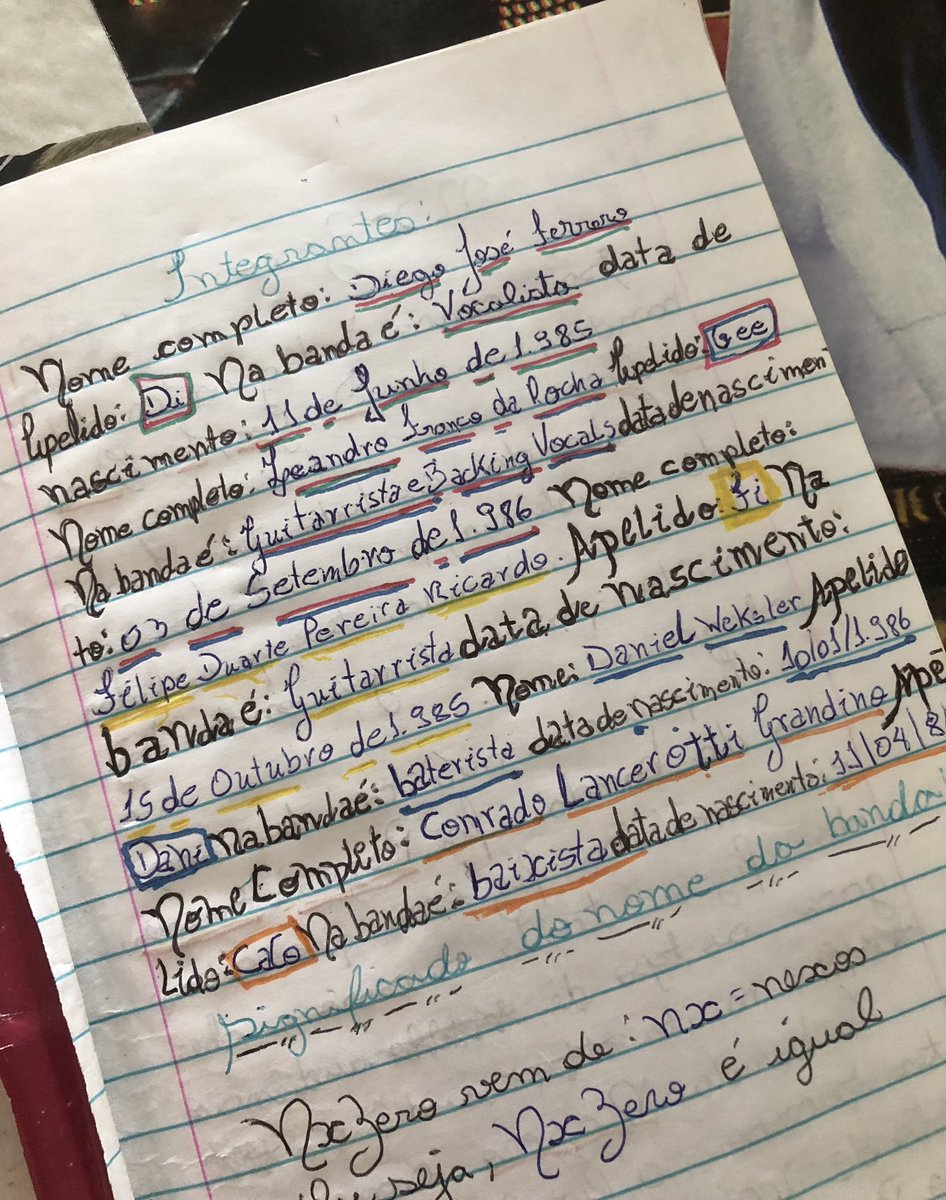 Integrantes:
Nome completo: Diego José Ferrero
Apelido: Di Na banda é: Vocalista data de
nascimento: 11 de Junho de 1.985
Nome completo: Leandro Franco da Rocha Apelido: Gee
Na banda é: Guitarrista e Backing Vocals data de nascimen
to: 03 de Setembro de 1.986 Nome completo:
Felipe Duarte Pereira Ricardo. Apelido: Fi Na
banda é: Guitarrista data de nascimento:
15 de Outubro de 1.985. Nome: Daniel Weksler Apelido
Dani na banda é: baterista data de nascimento: 10/01/1.986
Nome Completo: Conrado Lancerotti Grandino Ape
lido: Caco Na banda é: baixista data de nascimento: 11/04/8
Significado do nome da banda
NxZero vem de: nx = nexos
seja, NxZero é igual